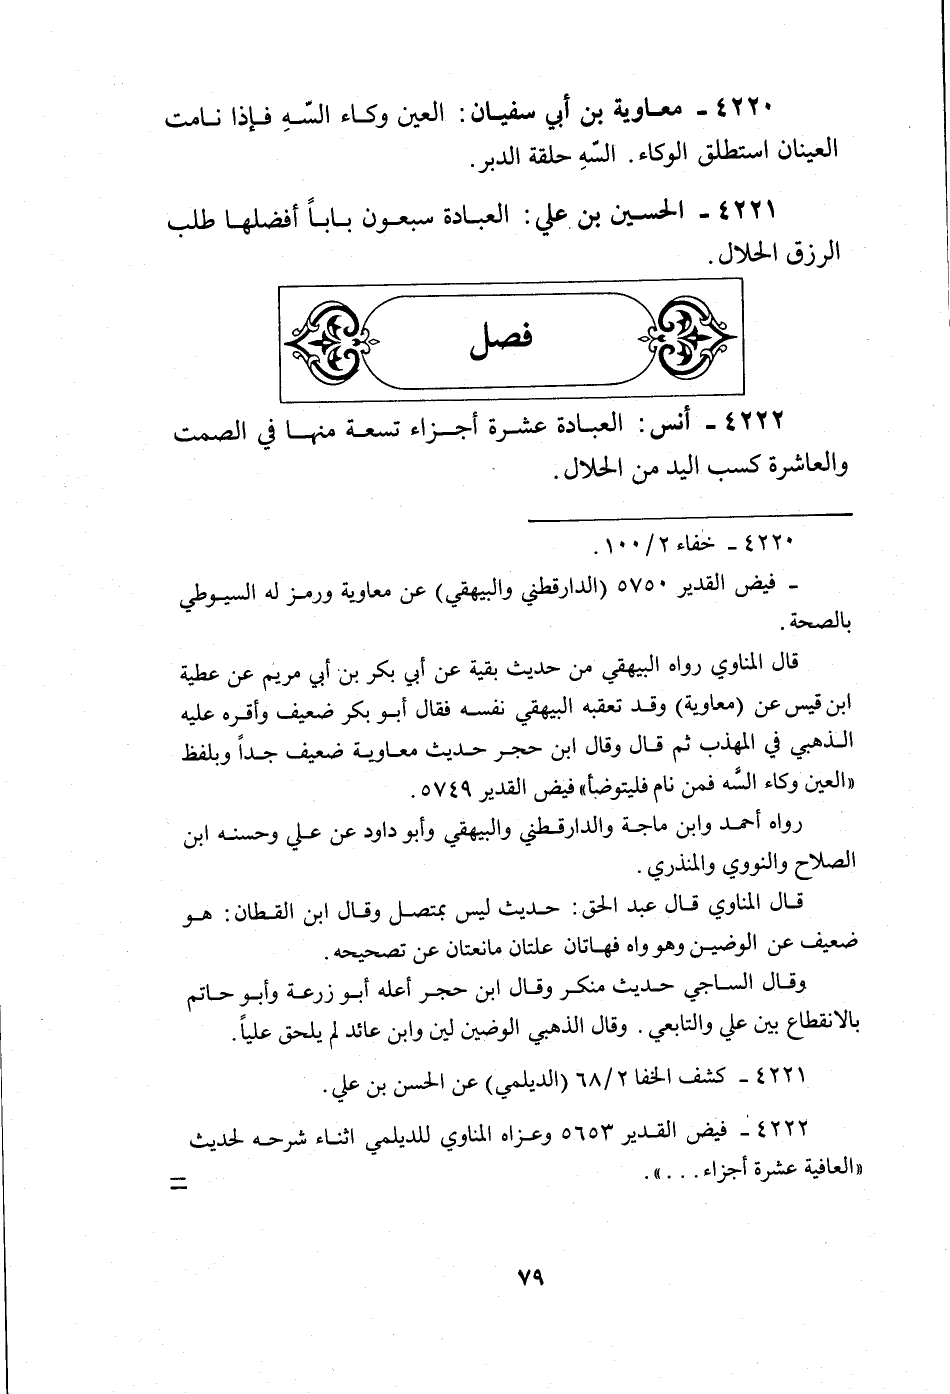 ٤٢٢٠ ـ معاوية بن أبي سفيان: العين وكاء السّهِ فإذا نامت
العينان استطلق الوكاء. السّهِ حلقة الدبر.
٤٢٢١ ـ الحسين بن علي: العبادة سبعون باباً أفضلها طلب
الرزق الحلال.
فصل
٤٢٢٢ ـ أنس: العبادة عشرة أجزاء تسعة منها في الصمت
والعاشرة كسب اليد من الحلال.
٤٢٢٠ ـ خفاء ١٠٠/٢.
ـ فيض القدير ٥٧٥٠ (الدارقطني والبيهقي) عن معاوية ورمز له السيوطي
بالصحة.
قال المناوي رواه البيهقي من حديث بقية عن أبي بكر بن أبي مريم عن عطية
ابن قيس عن (معاوية) وقد تعقبه البيهقي نفسه فقال أبو بكر ضعيف وأقره عليه
الذهبي في المهذب ثم قال وقال ابن حجر حديث معاوية ضعيف جداً وبلفظ
«العين وكاء السَّه فمن نام فليتوضأ» فيض القدير ٥٧٤٩.
رواه أحمد وابن ماجة والدارقطني والبيهقي وأبو داود عن علي وحسنه ابن
الصلاح والنووي والمنذري.
قال المناوي قال عبد الحق: حديث ليس بمتصل وقال ابن القطان: هو
ضعيف عن الوضين وهو واه فهاتان علتان مانعتان عن تصحيحه.
وقال الساجي حديث منكر وقال ابن حجر أعله أبو زرعة وأبو حاتم
بالانقطاع بين علي والتابعي. وقال الذهبي الوضين لين وابن عائد لم يلحق علياً.
٤٢٢١ ـ كشف الخفا ٦٨/٢ (الديلمي) عن الحسن بن علي.
٤٢٢٢ ـ فيض القدير ٥٦٥٣ وعزاه المناوي للديلمي اثناء شرحه لحديث
«العافية عشرة أجزاء...».
=
٧٩